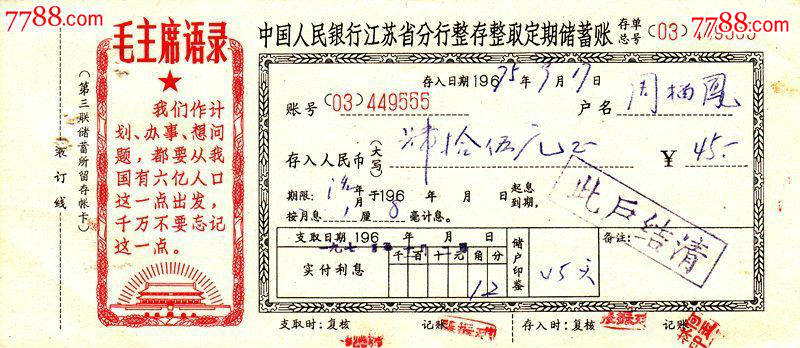 7788.com
7788.com
毛主席语录
我们作计
划、办事、想问
题，都要从我
国有六亿人口
这一点出发，
千万不要忘记
这一点。
（第三联储蓄所留存帐卡）
装订线
中国人民银行江苏省分行整存整取定期储蓄账
存单总号(03)449555
存入日期196 75年3月17日
账号(03)449555
户名 周栖凤
存入人民币(大写) 肆拾伍元正 ¥45.-
期限： 年 月 于196 年 月 日 起息到期，
按月息 1 厘 8 毫计息。
支取日期196 年 月 日
千百十元角分
实付利息 12
储户印鉴
备注：
此户结清
支取时：复核 记账 存入时：复核 记账